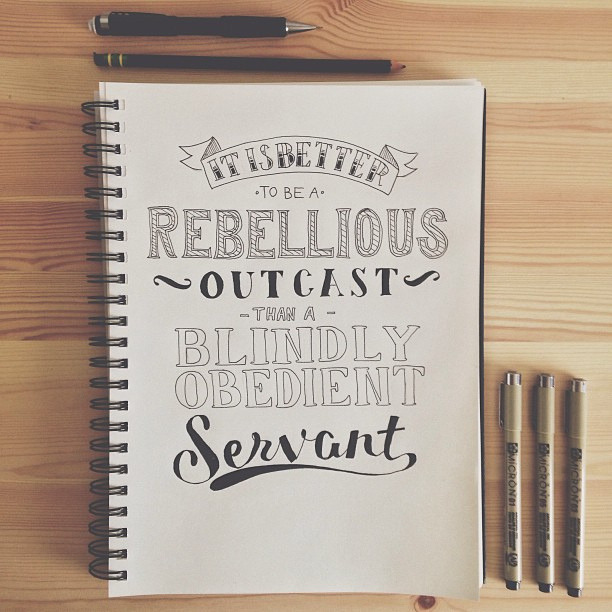 IT IS BETTER
·TO BE A·
REBELLIOUS
~OUTCAST~
-THAN A-
BLINDLY
OBEDIENT
Servant
MICRON
MICRON
MICRON